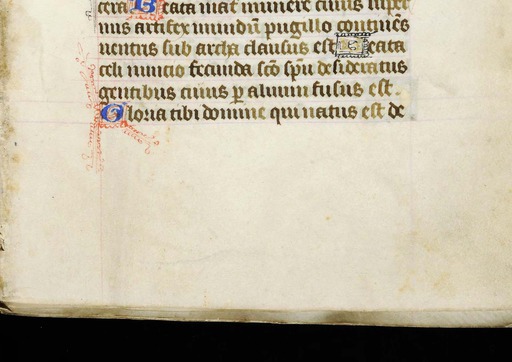 cera Beata mať munere cuius super
nus artifex mundū pugillo continēs
uentris sub archa clausus est Beata
celi nuncio fecunda sc̄o sp̄u desideratus
gentibus cuius ꝑ aluum fusus est.
Gloria tibi domine qui natus est de